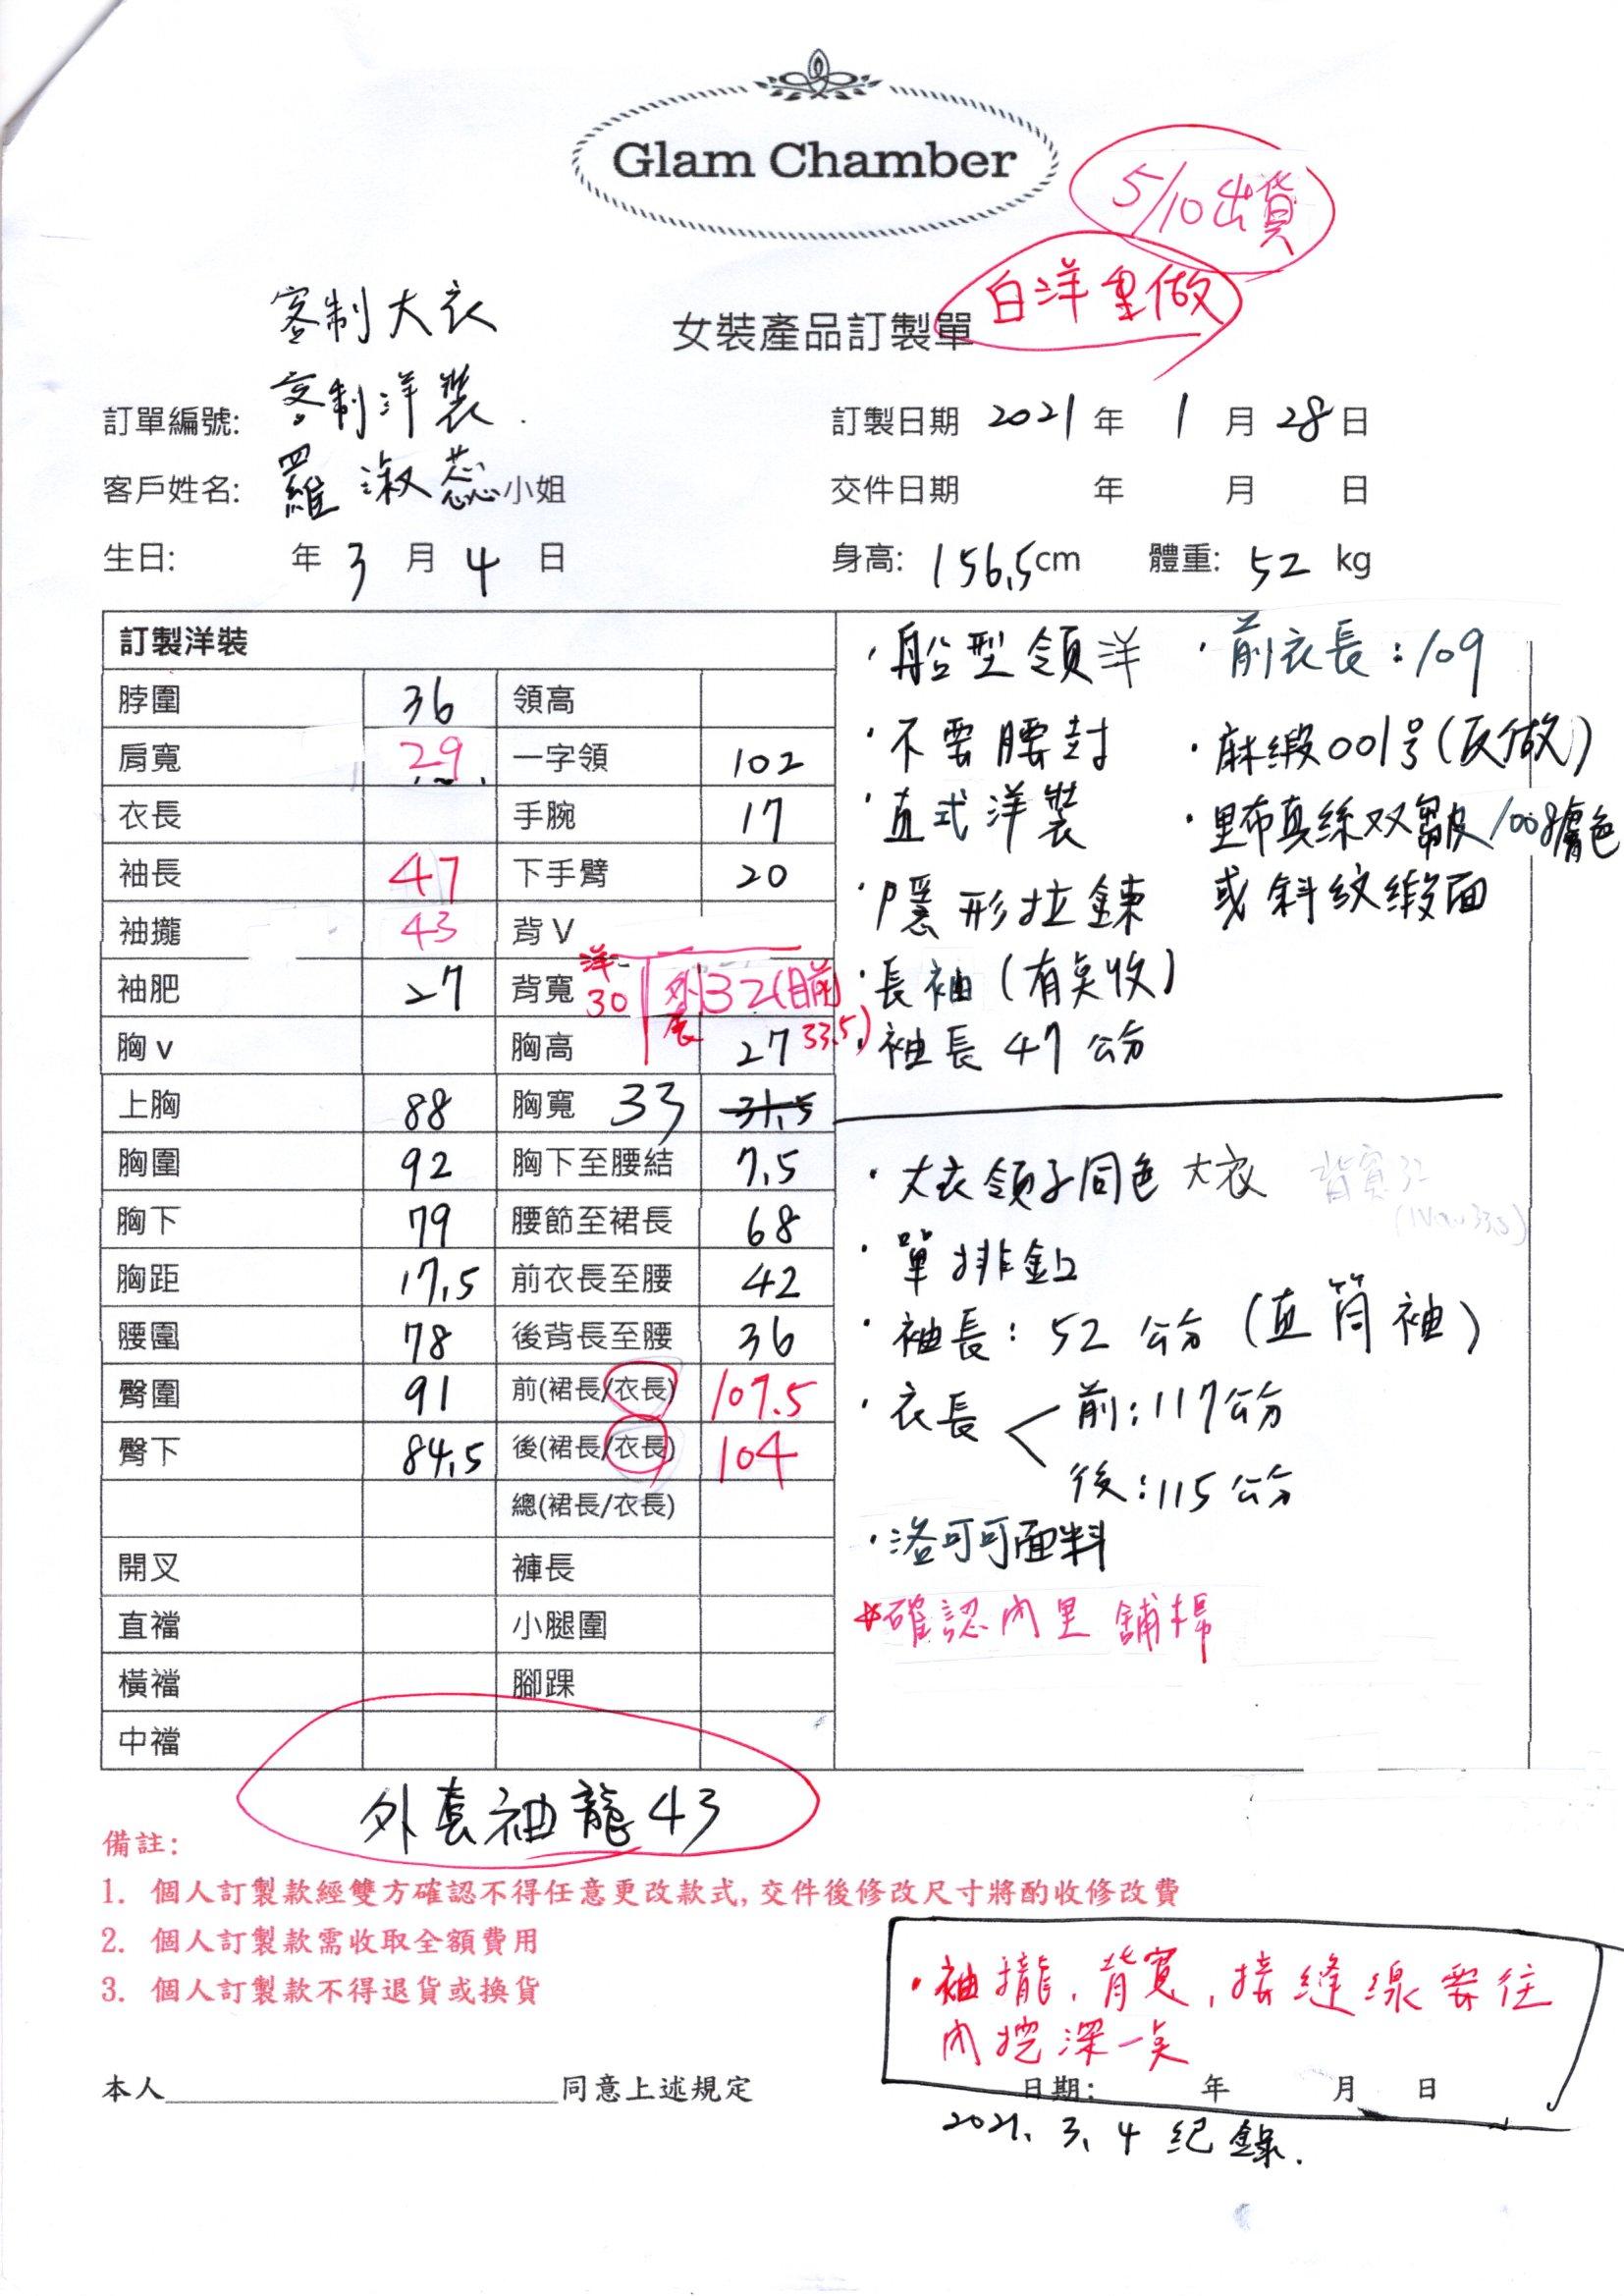 Glam Chamber
5/10出貨
白洋重做
客制大衣
女裝產品訂製單
客制洋裝
訂單編號:
訂製日期 2021 年 1 月 28 日
客戶姓名: 羅淑蕊小姐
交件日期 年 月 日
生日: 年 3 月 4 日
身高: 156.5cm 體重: 52 kg
訂製洋裝
脖圍 36 領高
肩寬 29 一字領 102
衣長 手腕 17
袖長 47 下手臂 20
袖攏 43 背V
袖肥 27 背寬 洋30 外套32(目前33.5)
胸v 胸高 27
上胸 88 胸寬 33 31.5
胸圍 92 胸下至腰結 7.5
胸下 79 腰節至裙長 68
胸距 17.5 前衣長至腰 42
腰圍 78 後背長至腰 36
臀圍 91 前(裙長/衣長) 107.5
臀下 84.5 後(裙長/衣長) 104
總(裙長/衣長)
開叉 褲長
直襠 小腿圍
橫襠 腳踝
中襠
·船型領洋
·不要腰封
·直式洋裝
·隱形拉鍊
·長袖(有夾收)
·袖長47公分
·前衣長:109
·麻緞001号(反做)
·里布真絲双皺/008膚色
或斜紋緞面
·大衣領子同色大衣
背寬32
·單排釦
·袖長:52公分(直筒袖)
·衣長<前:117公分
後:115公分
·洛可可面料
*確認內里鋪棉
外套袖龍43
備註:
1. 個人訂製款經雙方確認不得任意更改款式,交件後修改尺寸將酌收修改費
2. 個人訂製款需收取全額費用
3. 個人訂製款不得退貨或換貨
·袖攏,背寬,接縫線要往
內挖深一点
本人 同意上述規定
日期: 年 月 日
2021.3.4紀錄.